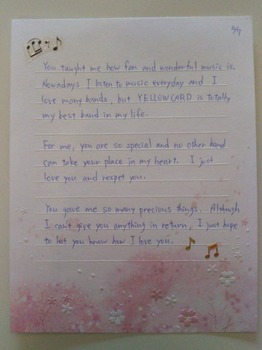 4/4
You taught me how fun and wonderful music is.
Nowadays I listen to music everyday and I
love many bands, but YELLOWCARD is totally
my best band in my life.
For me, you are so special and no other band
can take your place in my heart. I just
love you and respet you.
You gave me so many precious things. Although
I can't give you anything in return, I just hope
to let you know how I love you.